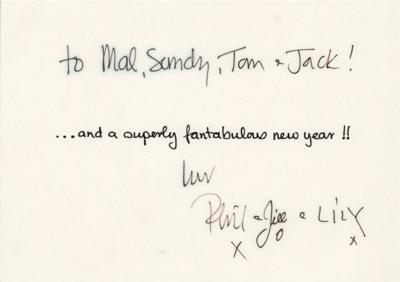 to Mal, Sandy, Tom & Jack!
...and a superly fantabulous new year !!
luv
Phil & Jill & LILY
x o x